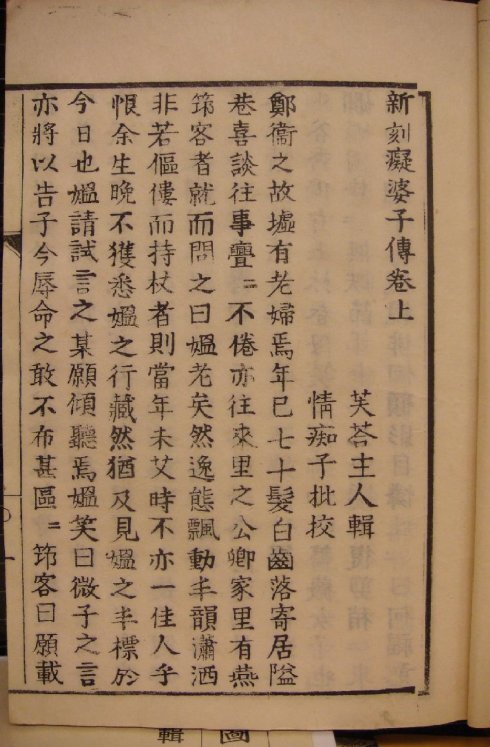 新刻癡婆子傳卷上
芙蓉主人輯
情痴子批挍
鄭衞之故墟有老婦焉年已七十髮白齒落寄居隘
巷喜談往事亹〻不倦亦往來里之公卿家里有燕
筇客者就而問之曰媼老矣然逸態飄動丰韻瀟洒
非若傴僂而持杖者則當年未艾時不亦一佳人乎
恨余生晚不獲悉媼之行藏然猶及見媼之丰標於
今日也媼請試言之某願傾聽焉媼笑曰微子之言
亦將以告子今辱命之敢不布甚區〻筇客曰願載
輯
圖